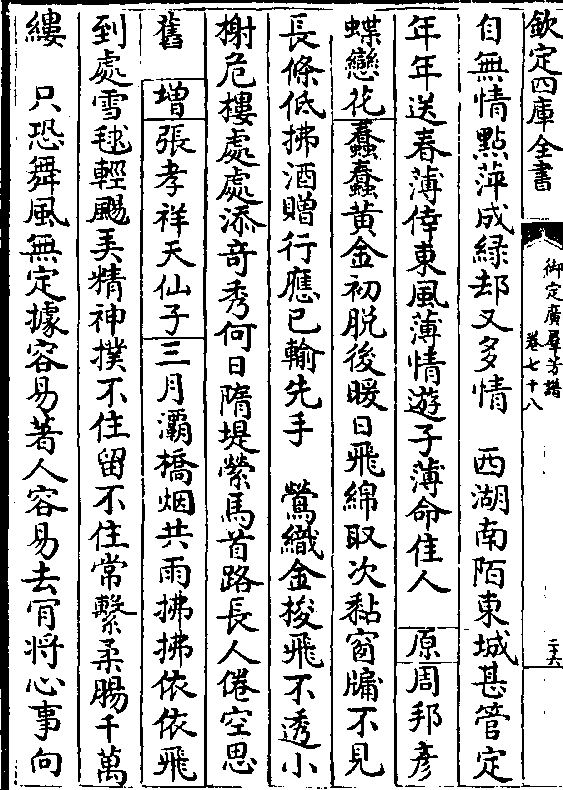 欽定四庫全書
御定廣羣芳譜
卷七十八
二十六
自無情點萍成緑却又多情　西湖南陌東城甚管定
年年送春薄倖東風薄情遊子薄命佳人　原周邦彦
蝶戀花蠢蠢黄金初脱後暖日飛綿取次黏窗牖不見
長條低拂酒贈行應已輸先手　鶯織金梭飛不透小
榭危樓處處添竒秀何日隋堤縈馬首路長人倦空思
舊　增張孝祥天仙子三月灞橋烟共雨拂拂依依飛
到處雪毬輕颺美精神撲不住留不住常繫柔腸千萬
縷　只恐舞風無定據容易著人容易去肎将心事向